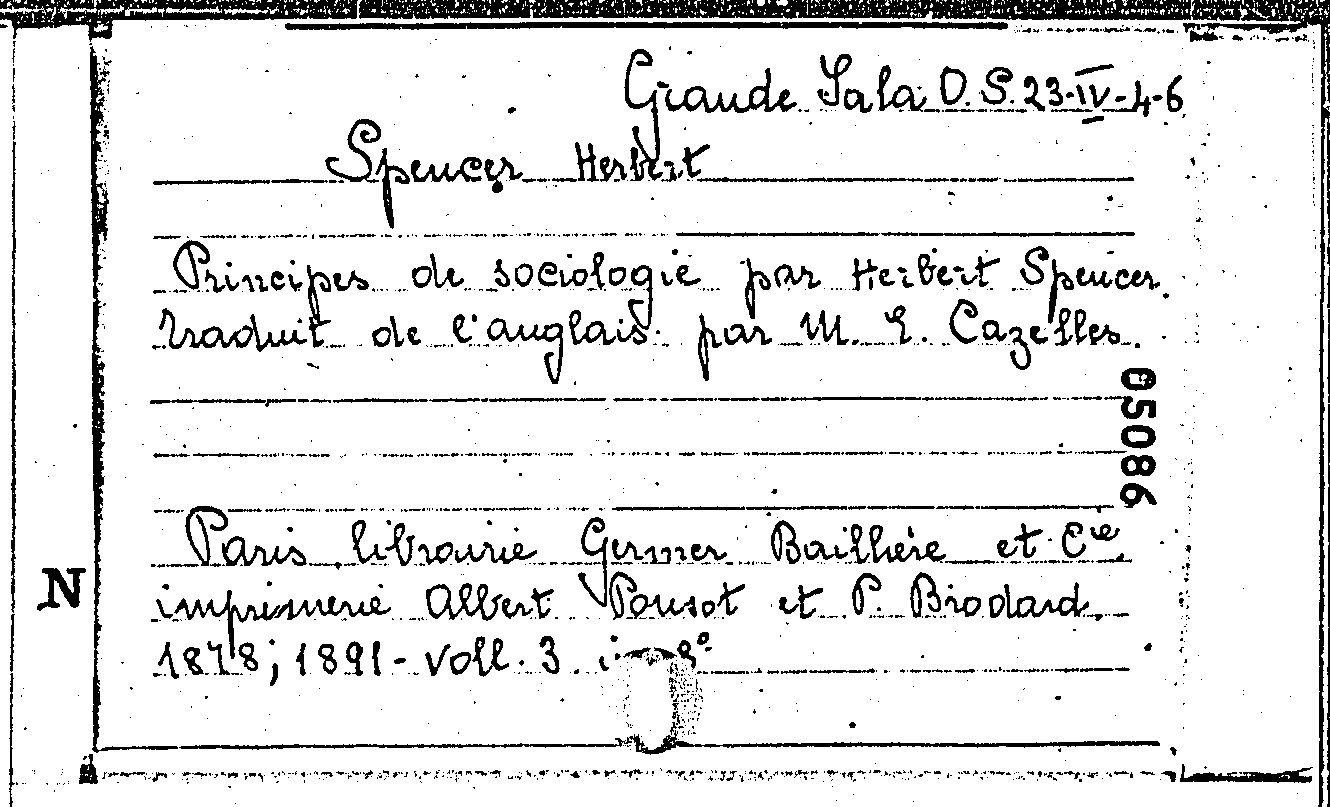 Grande Sala D. S. 23-IV-4-6
Spencer Herbert
Principes de sociologie par Herbert Spencer.
traduit de l'anglais par M. E. Cazelles.
05086
Paris librairie Germer Baillière et Cie.
N
imprimerie Albert Pousot et P. Brodard.
1878; 1891 - voll. 3 8°